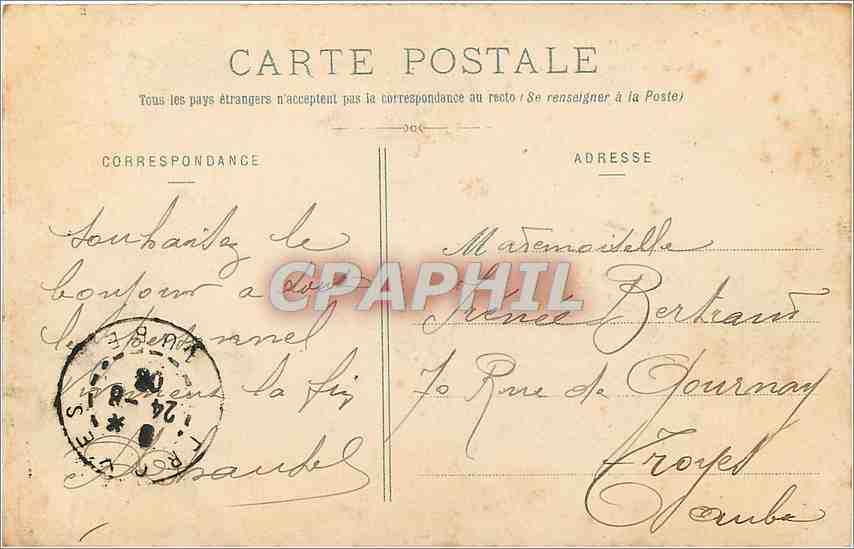 CARTE POSTALE
Tous les pays étrangers n'acceptent pas la correspondance au recto (Se renseigner à la Poste)
CORRESPONDANCE
souhaitez le
bonjour a tout
le personnel
la fin
ADRESSE
Mademoiselle
Irénée Bertrand
70 Rue de Gournay
Troyes
Aube
CPARAMA
TROYES
AUBE
24 - 8
08